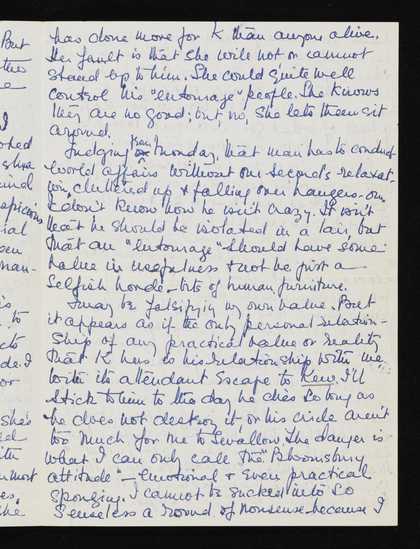 has done more for K than anyone alive.
Her fault is that she will not or cannot
stand up to him. She could quite well
control his "entourage" people. She knows
they are no good; but, no, She lets them sit
around.
Judging from Monday, that man has to conduct
world affairs without one second's relaxat-
ion, cluttered up & falling over hangers-on.
I don't know how he isn't crazy. It isn't
that he should be isolated in a lair but
that an "entourage" should have some
value in usefulness & not be just a
selfish horde – bits of human furniture.
I may be falsifying my own value. But
it appears as if the only personal relation-
ship of any practical value or reality
that K has is his relationship with me
with its attendant Escape to Kew. I'll
stick to him to the day he dies so long as
he does not destroy it, or his circle aren't
too much for me to swallow. The danger is
what I can only call the "Bloomsbury
attitude" – emotional & even practical
sponging. I cannot be sucked into so
senseless a round of nonsense because I
But
I
spicious
ial
man-
is
to
cts
de. I
or
she's
ith
most
es.
the